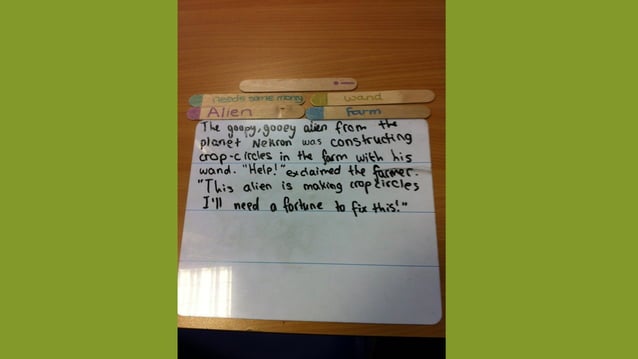 Needs some mony
wand
Alien
Farm
The goopy, gooey alien from the
planet Nekron was constructing
crop-circles in the farm with his
wand. "Help!" exclaimed the farmer.
"This alien is making crop circles
I'll need a fortune to fix this!"